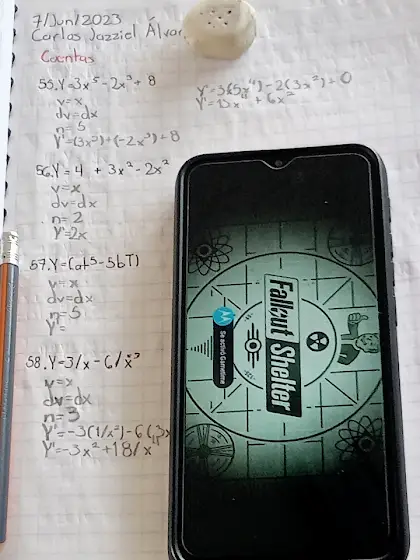 7/Jun/2023
Carlos Jazziel Álvar
Cuentas
55.Y=3x⁵-2x³+8
v=x
dv=dx
n=5
y'=(3x⁵)+(-2x³)+8
y'=3(5x⁴)-2(3x²)+0
y'=15x⁴+6x²
56.Y=4+3x²-2x²
v=x
dv=dx
n=2
y'=2x
57.Y=(at⁵-5bT)
v=x
dv=dx
n=5
y'=
58.Y=3/x-6/x³
v=x
dv=dx
n=3
y'=-3(1/x²)-6(
y'=-3x²+18/x
Fallout Shelter
Se activó Gametime